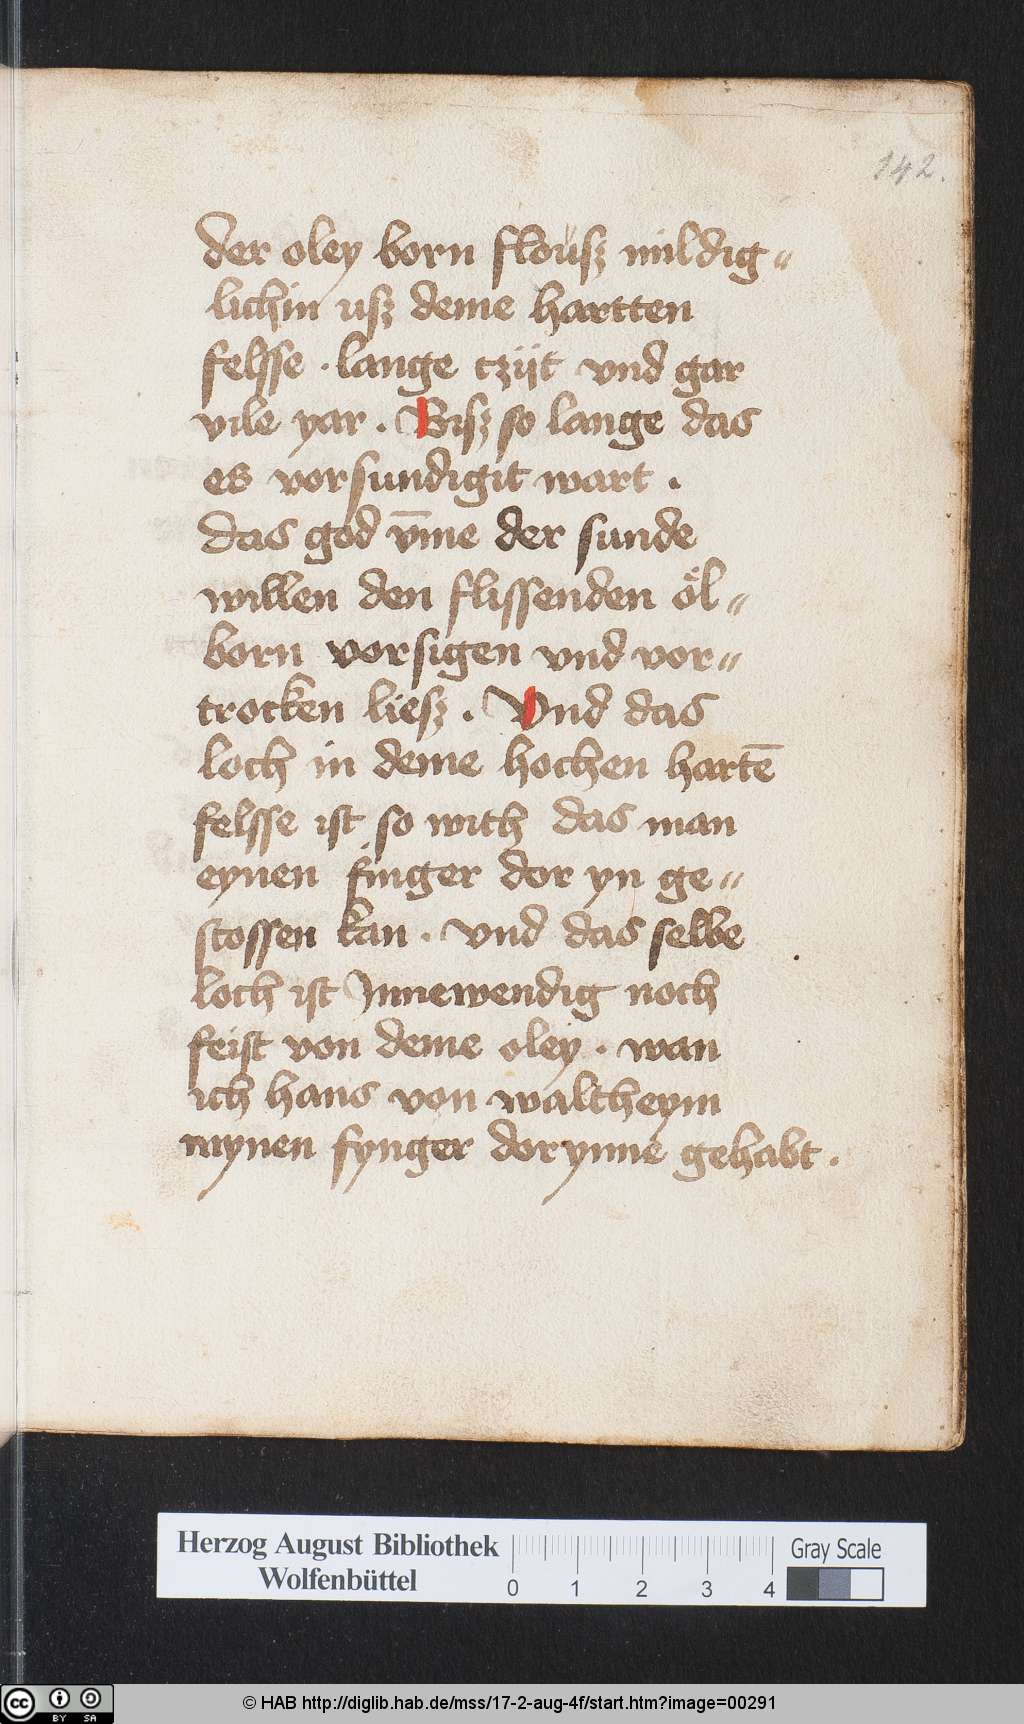 142.
der oley born flousz mildig„
lichin usz deme hartten
felsse · lange czijt vnd gar
vile yar . Bisz so lange das
es vorsundigit wart .
das god v̄me der sunde
willen den flissenden öl„
born vorsigen vnd vor„
trocken liesz . Vnd das
loch in deme hochen hartē
felsse ist so with das man
eynen finger dor yn ge„
stossen kan . vnd das selbe
loch ist Jnnewendig noch
feist von deme oley . wan
ich hans von waltheym
mynen fynger dorynne gehabt .
Herzog August Bibliothek
Wolfenbüttel
0 1 2 3 4
Gray Scale
cc BY SA
© HAB http://diglib.hab.de/mss/17-2-aug-4f/start.htm?image=00291